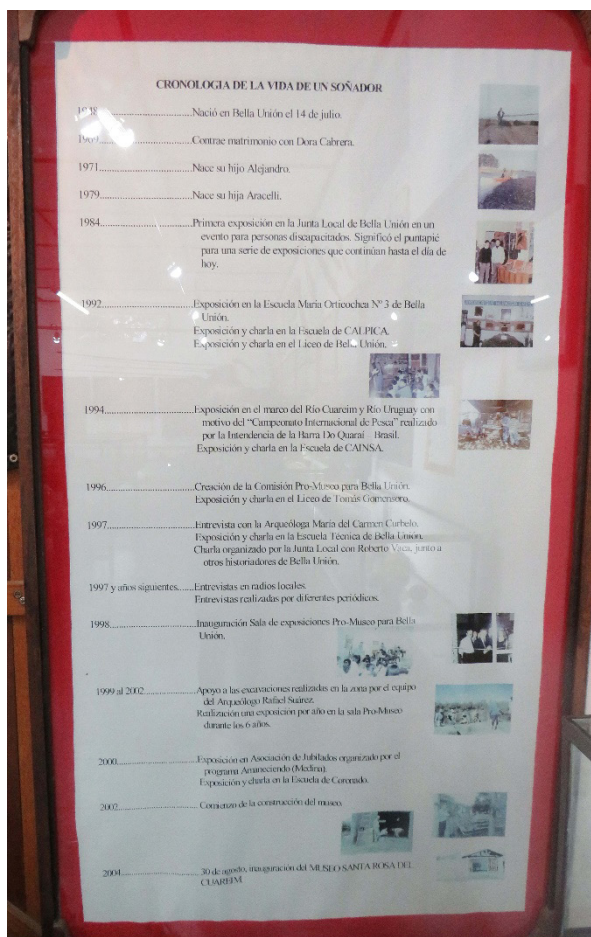 CRONOLOGIA DE LA VIDA DE UN SOÑADOR
1948.............................Nació en Bella Unión el 14 de julio.
1969.............................Contrae matrimonio con Dora Cabrera.
1971.............................Nace su hijo Alejandro.
1979.............................Nace su hija Aracelli.
1984.............................Primera exposición en la Junta Local de Bella Unión en un
evento para personas discapacitados. Significó el puntapié
para una serie de exposiciones que continúan hasta el día de
hoy.
1992.............................Exposición en la Escuela María Orticochea Nº 3 de Bella
Unión.
Exposición y charla en la Escuela de CALPICA.
Exposición y charla en el Liceo de Bella Unión.
1994.............................Exposición en el marco del Río Cuareim y Río Uruguay con
motivo del "Campeonato Internacional de Pesca" realizado
por la Intendencia de la Barra Do Quaraí Brasil.
Exposición y charla en la Escuela de CAINSA.
1996.............................Creación de la Comisión Pro-Museo para Bella Unión.
Exposición y charla en el Liceo de Tomás Gomensoro.
1997.............................Entrevista con la Arqueóloga María del Carmen Curbelo.
Exposición y charla en la Escuela Técnica de Bella Unión.
Charla organizado por la Junta Local con Roberto Vaca, junto a
otros historiadores de Bella Unión.
1997 y años siguientes.......Entrevistas en radios locales.
Entrevistas realizadas por diferentes periódicos.
1998.............................Inauguración Sala de exposiciones Pro-Museo para Bella
Unión.
1999 al 2002.................Apoyo a las excavaciones realizadas en la zona por el equipo
del Arqueólogo Rafael Suárez.
Realización una exposición por año en la sala Pro-Museo
durante los 6 años.
2000.............................Exposición en Asociación de Jubilados organizado por el
programa Amaneciendo (Medina).
Exposición y charla en la Escuela de Coronado.
2002.............................Comienzo de la construcción del museo.
2004.............................30 de agosto, inauguración del MUSEO SANTA ROSA DEL
CUAREIM.